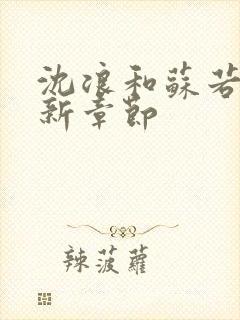 沈浪和蘇若
新章節
辣菠蘿